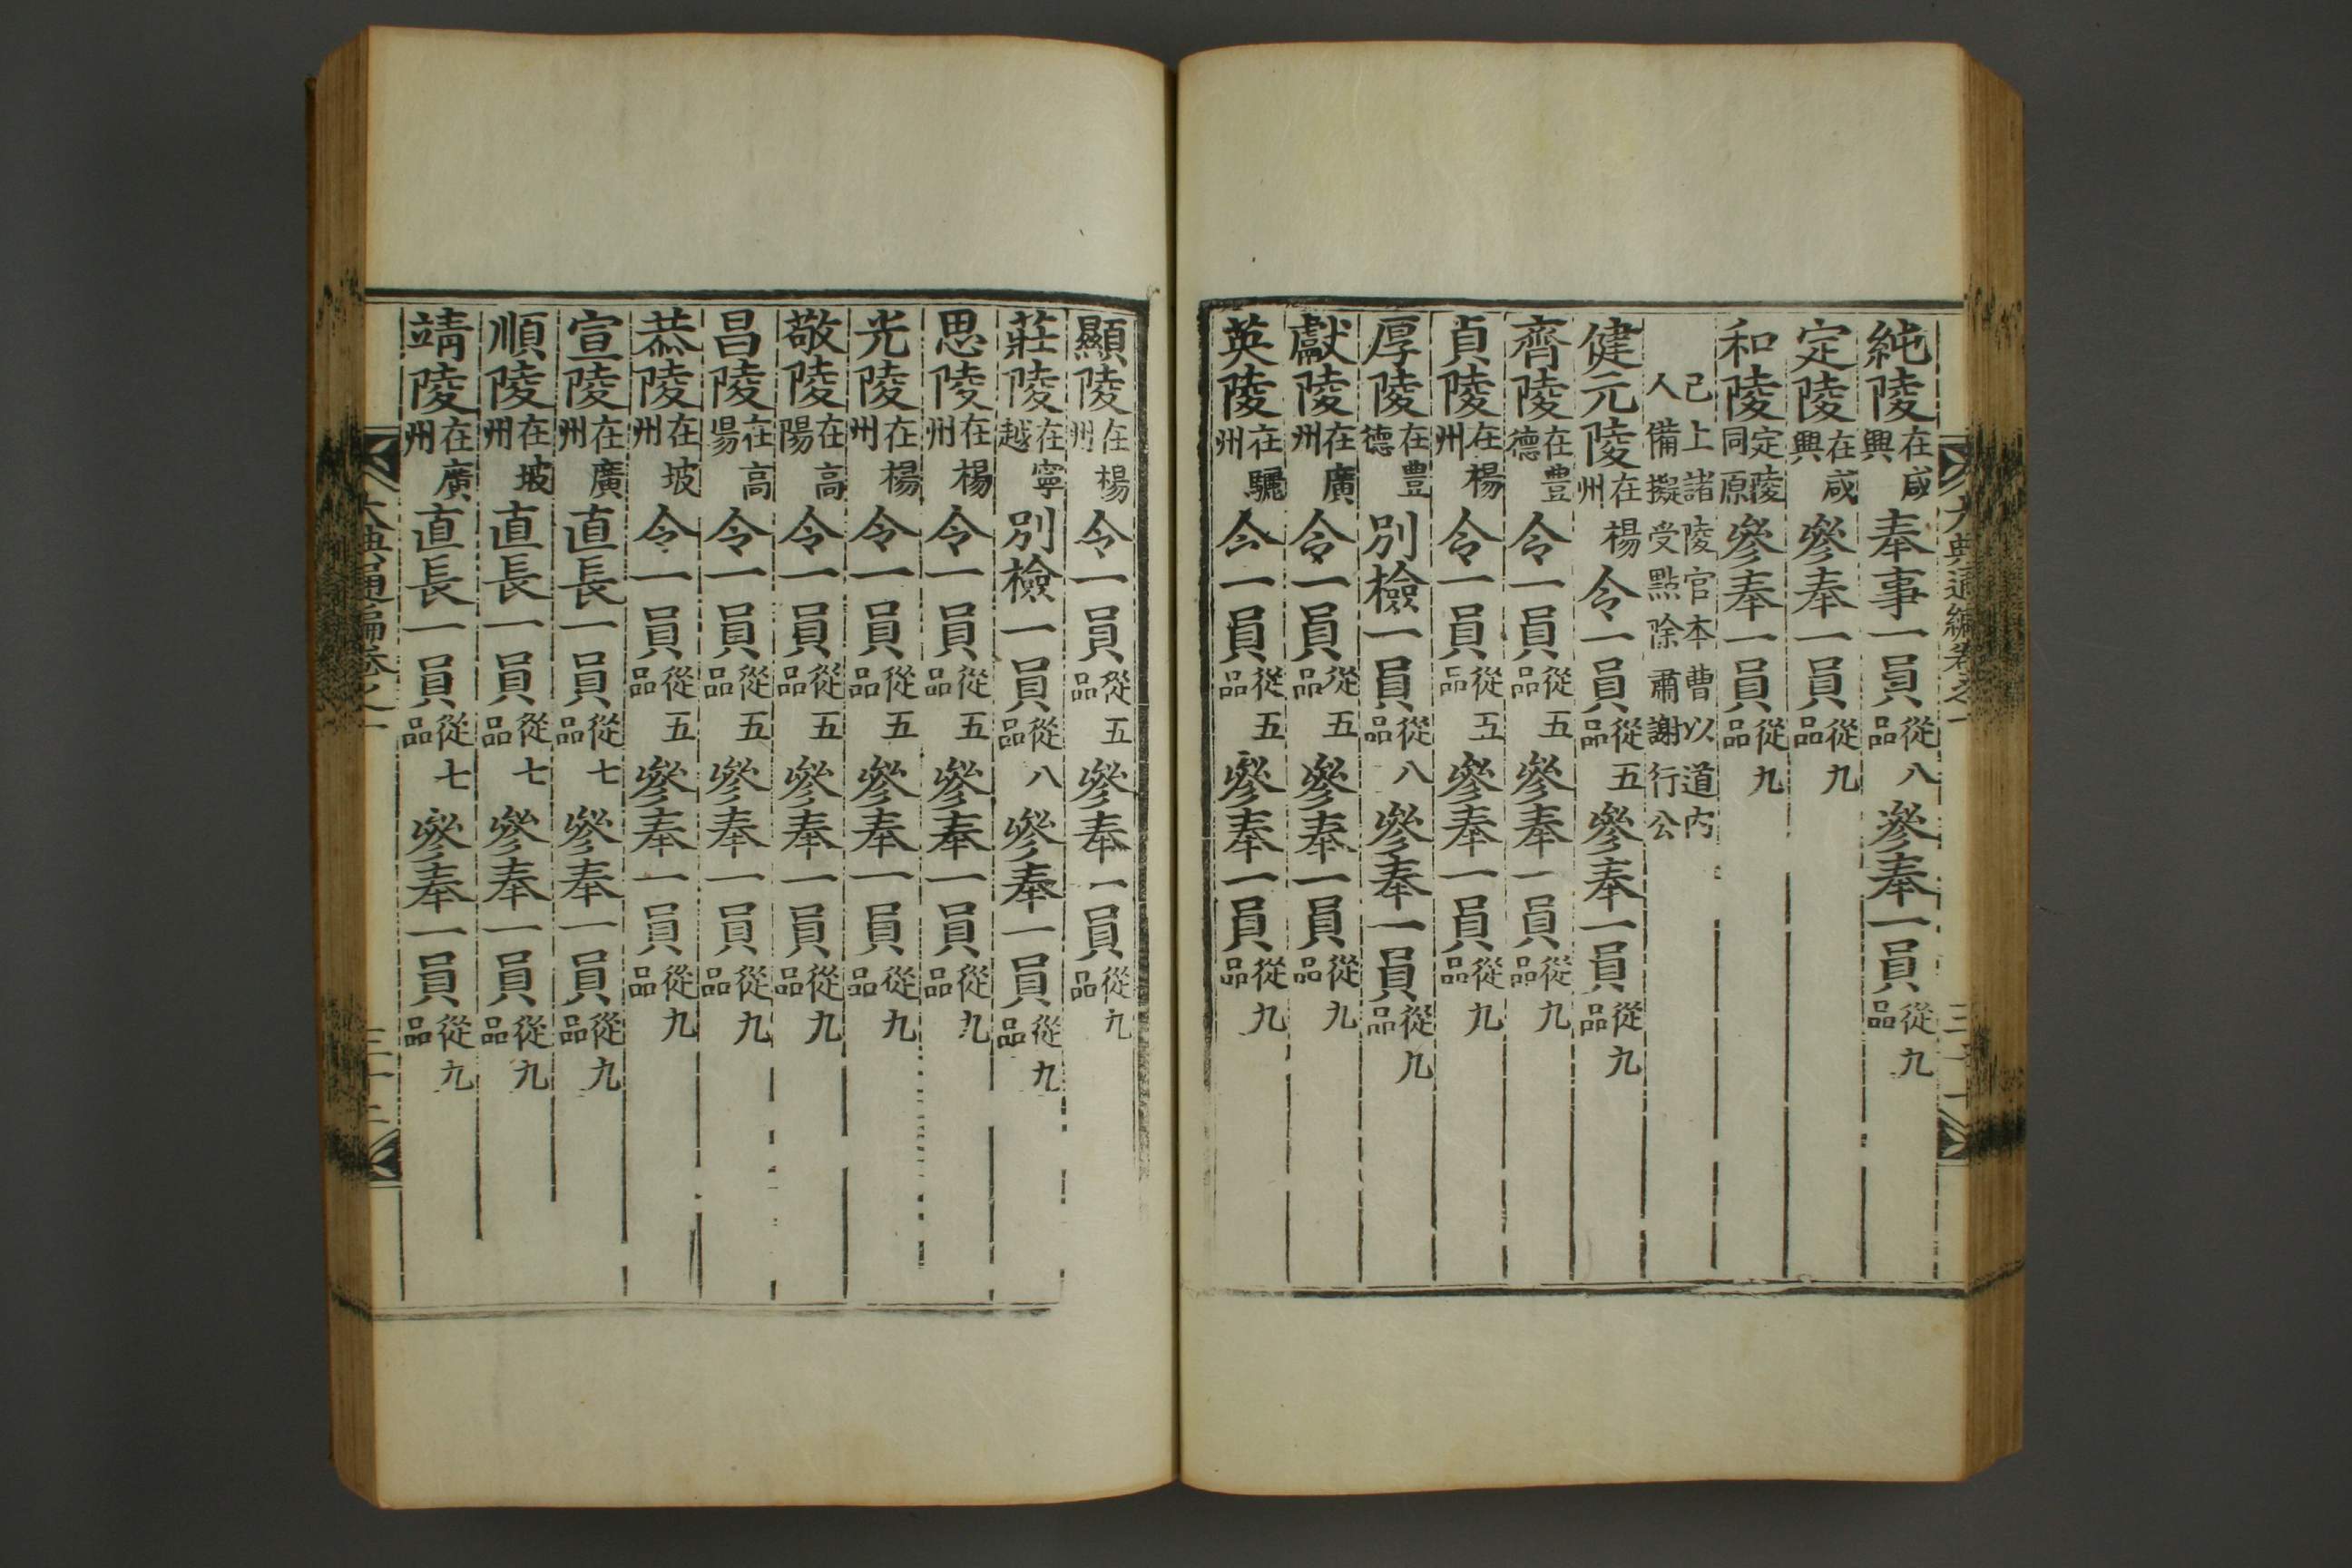 純陵在咸興奉事一員從八品參奉一員從九品
定陵在咸興參奉一員從九品
和陵定陵同原參奉一員從九品
已上諸陵官本曹以道內
人備擬受點除肅謝行公
健元陵在楊州令一員從五品參奉一員從九品
齊陵在豊德令一員從五品參奉一員從九品
貞陵在楊州令一員從五品參奉一員從九品
厚陵在豊德別檢一員從八品參奉一員從九品
獻陵在廣州令一員從五品參奉一員從九品
英陵在驪州令一員從五品參奉一員從九品
顯陵在楊州令一員從五品參奉一員從九品
莊陵在寧越別檢一員從八品參奉一員從九品
思陵在楊州令一員從五品參奉一員從九品
光陵在楊州令一員從五品參奉一員從九品
敬陵在高陽令一員從五品參奉一員從九品
昌陵在高陽令一員從五品參奉一員從九品
恭陵在坡州令一員從五品參奉一員從九品
宣陵在廣州直長一員從七品參奉一員從九品
順陵在坡州直長一員從七品參奉一員從九品
靖陵在廣州直長一員從七品參奉一員從九品
大典通編卷之一 三十二